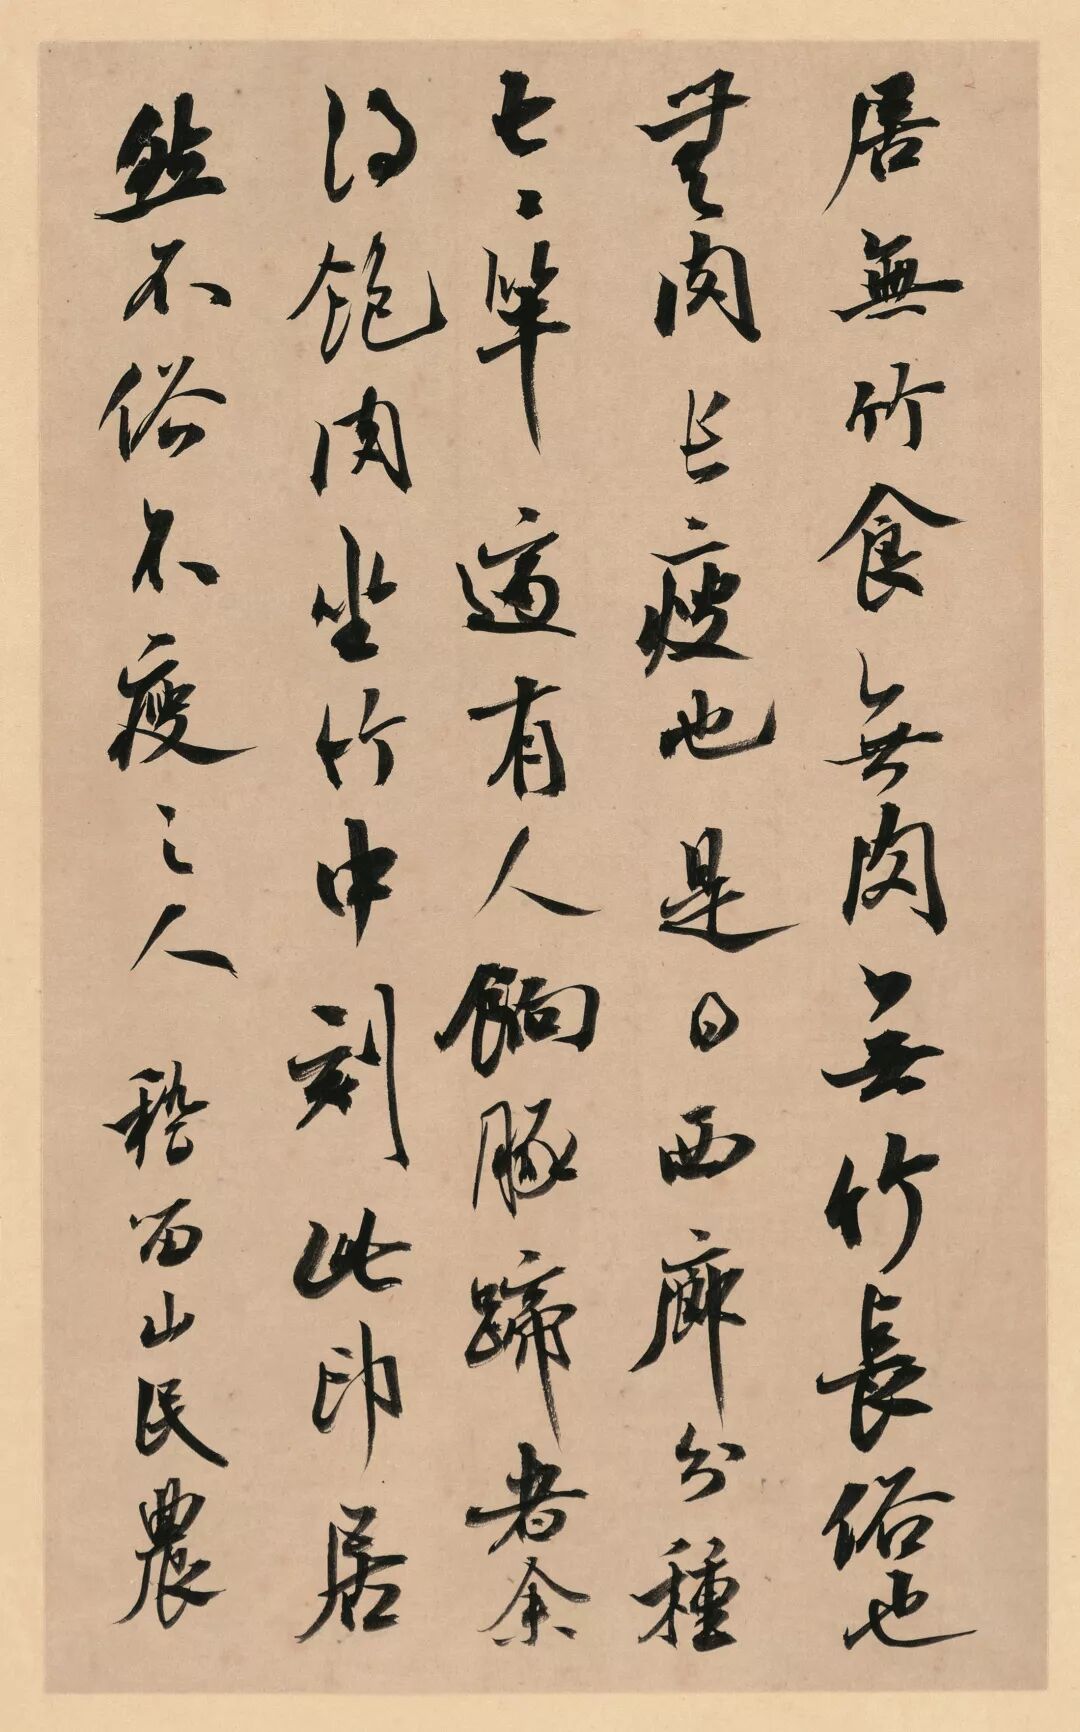 居無竹食無肉無竹長俗也
無肉長瘦也是日西廊分種
七〻竿適有人餉豚蹄者余
得飽肉坐竹中刻此印居
然不俗不瘦之人 稽留山民農